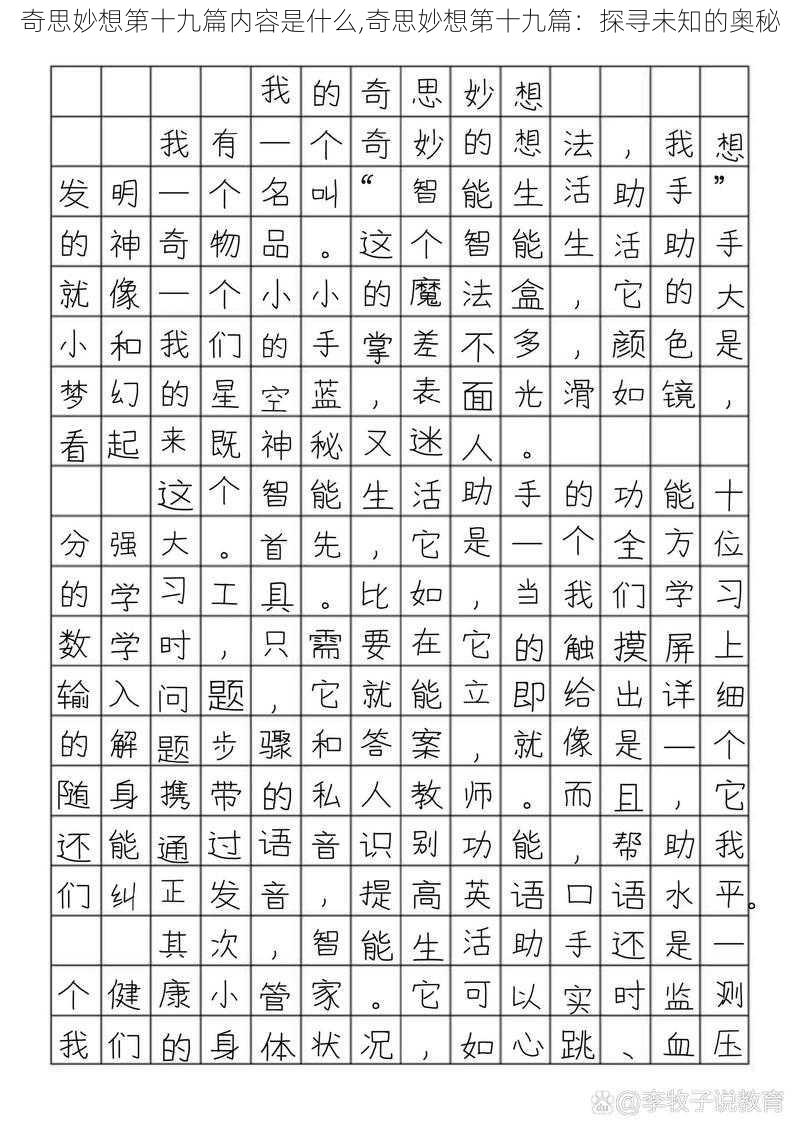 奇思妙想第十九篇内容是什么,奇思妙想第十九篇：探寻未知的奥秘
我的奇思妙想
我有一个奇妙的想法，我想
发明一个名叫“智能生活助手”
的神奇物品。这个智能生活助手
就像一个小小的魔法盒，它的大
小和我们的手掌差不多，颜色是
梦幻的星空蓝，表面光滑如镜，
看起来既神秘又迷人。
这个智能生活助手的功能十
分强大。首先，它是一个全方位
的学习工具。比如，当我们学习
数学时，只需要在它的触摸屏上
输入问题，它就能立即给出详细
的解题步骤和答案，就像是一个
随身携带的私人教师。而且，它
还能通过语音识别功能，帮助我
们纠正发音，提高英语口语水平。
其次，智能生活助手还是一
个健康小管家。它可以实时监测
我们的身体状况，如心跳、血压
@李牧子说教育